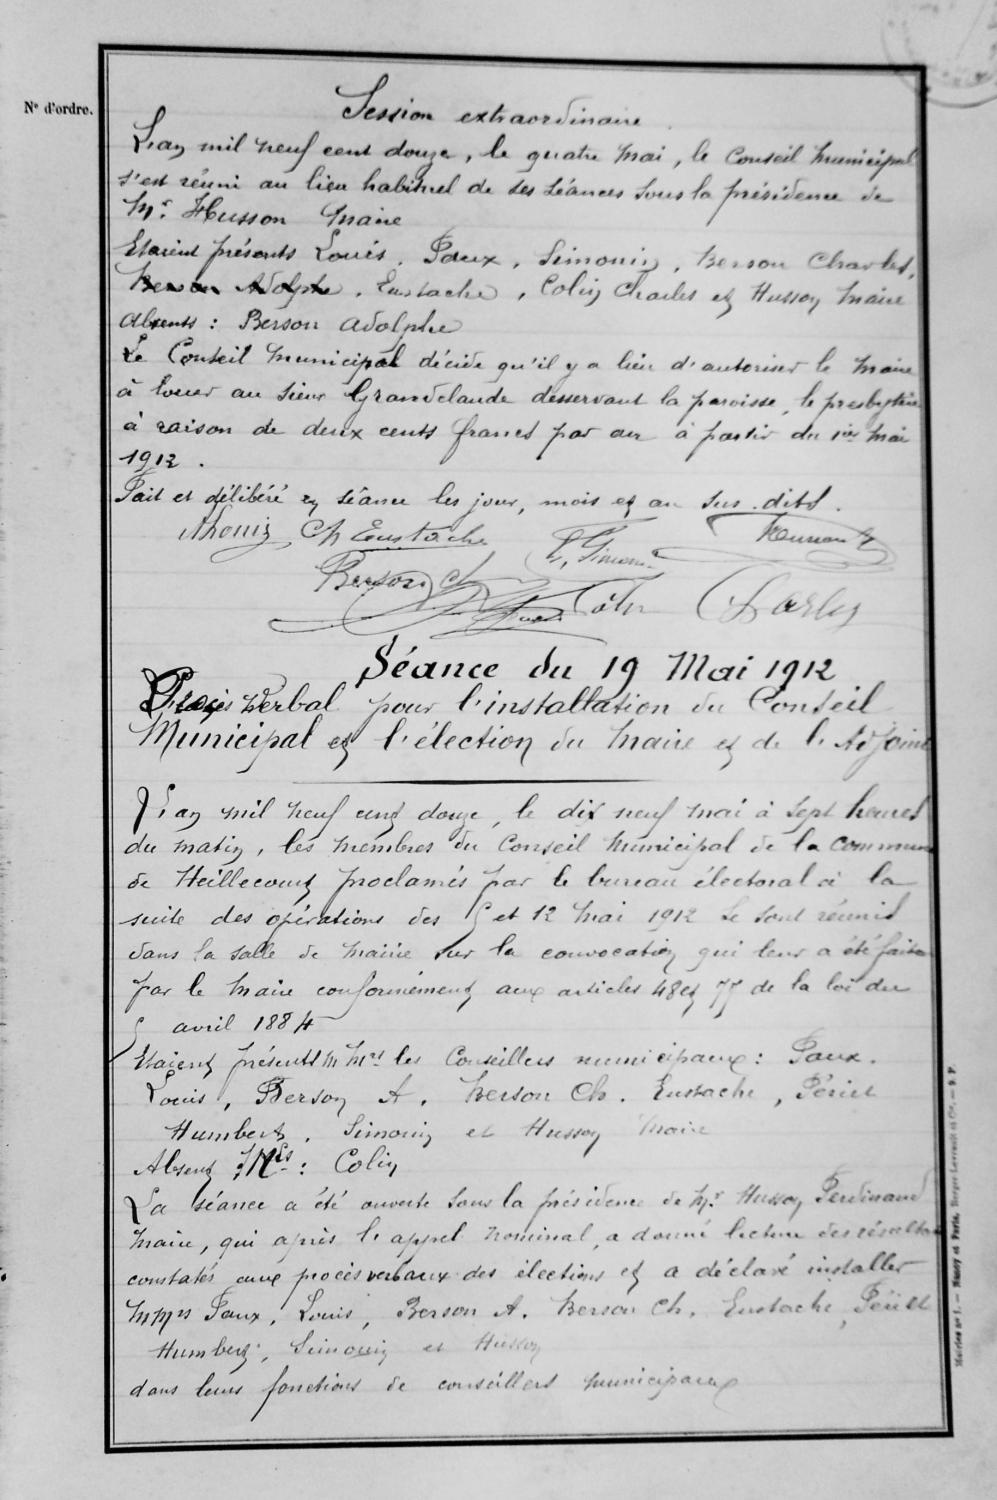 N° d'ordre.
Session extraordinaire
L'an mil neuf cent douze, le quatre mai, le Conseil Municipal
s'est réuni au lieu habituel de ses séances sous la présidence de
Mr Husson Maire
Etaient présents Louis, Paux, Simonin, Berson Charles,
Berson Adolphe, Eustache, Colin Charles et Husson Maire
Absents : Berson Adolphe
Le Conseil Municipal décide qu'il y a lieu d'autoriser le Maire
à louer au sieur Grandclaude desservant la paroisse, le presbytère
à raison de deux cents francs par an à partir du 1er Mai
1912.
Fait et délibéré en séance les jour, mois et an sus-dits.
Ch Eustache
Berson Ch
Colin Charles
Séance du 19 Mai 1912
Procès verbal pour l'installation du Conseil
Municipal et l'élection du Maire et de l'Adjoint
L'an mil neuf cent douze, le dix neuf mai à sept heures
du matin, les membres du Conseil Municipal de la commune
de Heillecourt proclamés par le bureau électoral à la
suite des opérations des 5 et 12 Mai 1912 se sont réunis
dans la salle de Mairie sur la convocation qui leur a été faite
par le Maire conformément aux articles 48 et 77 de la loi du
5 avril 1884
Etaient présents MMrs les Conseillers municipaux : Paux.
Louis, Berson A. Berson Ch. Eustache, Périet
Humbert, Simonin et Husson Maire
Absent : Mrs : Colin
La séance a été ouverte sous la présidence de Mr Husson Ferdinand
Maire, qui après l'appel nominal, a donné lecture des résultats
constatés aux procès verbaux des élections et a déclaré installer
MMrs Paux, Louis, Berson A. Berson Ch. Eustache, Périet
Humbert, Simonin et Husson
dans leurs fonctions de conseillers municipaux
Mairies n° 1. — Nancy et Paris, Berger-Levrault et Cie. — S. P.